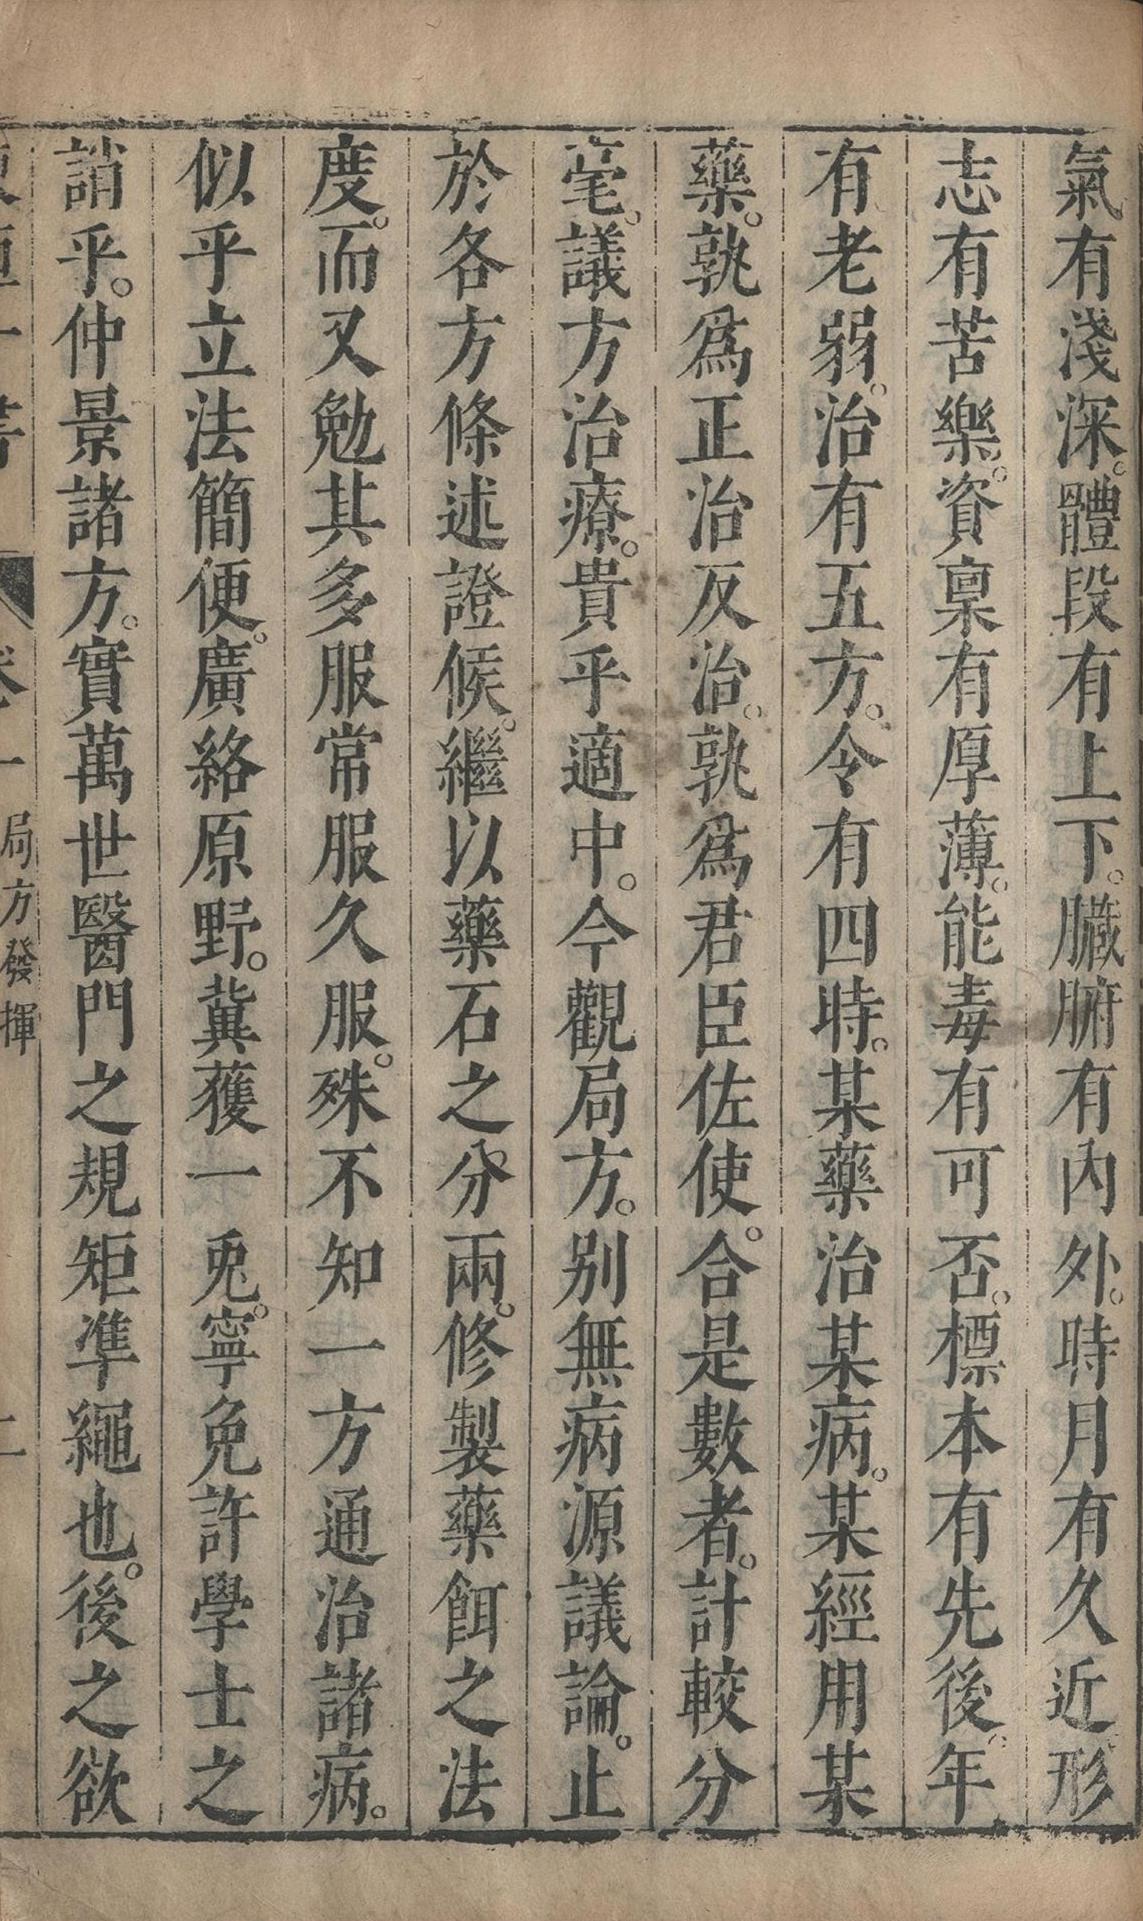 氣有淺深。體段有上下。臟腑有內外。時月有久近。形
志有苦樂。資稟有厚薄。能毒有可否。標本有先後。年
有老弱。治有五方。令有四時。某藥治某病。某經用某
藥。孰爲正治反治。孰爲君臣佐使。合是數者。計較分
毫。議方治療。貴乎適中。今觀局方。別無病源議論。止
於各方條述證候。繼以藥石之分兩。修製藥餌之法
度。而又勉其多服常服久服。殊不知一方通治諸病。
似乎立法簡便。廣絡原野。冀獲一兎。寧免許學士之
誚乎。仲景諸方。實萬世醫門之規矩準繩也。後之欲
東垣十書 卷一 局方發揮 二